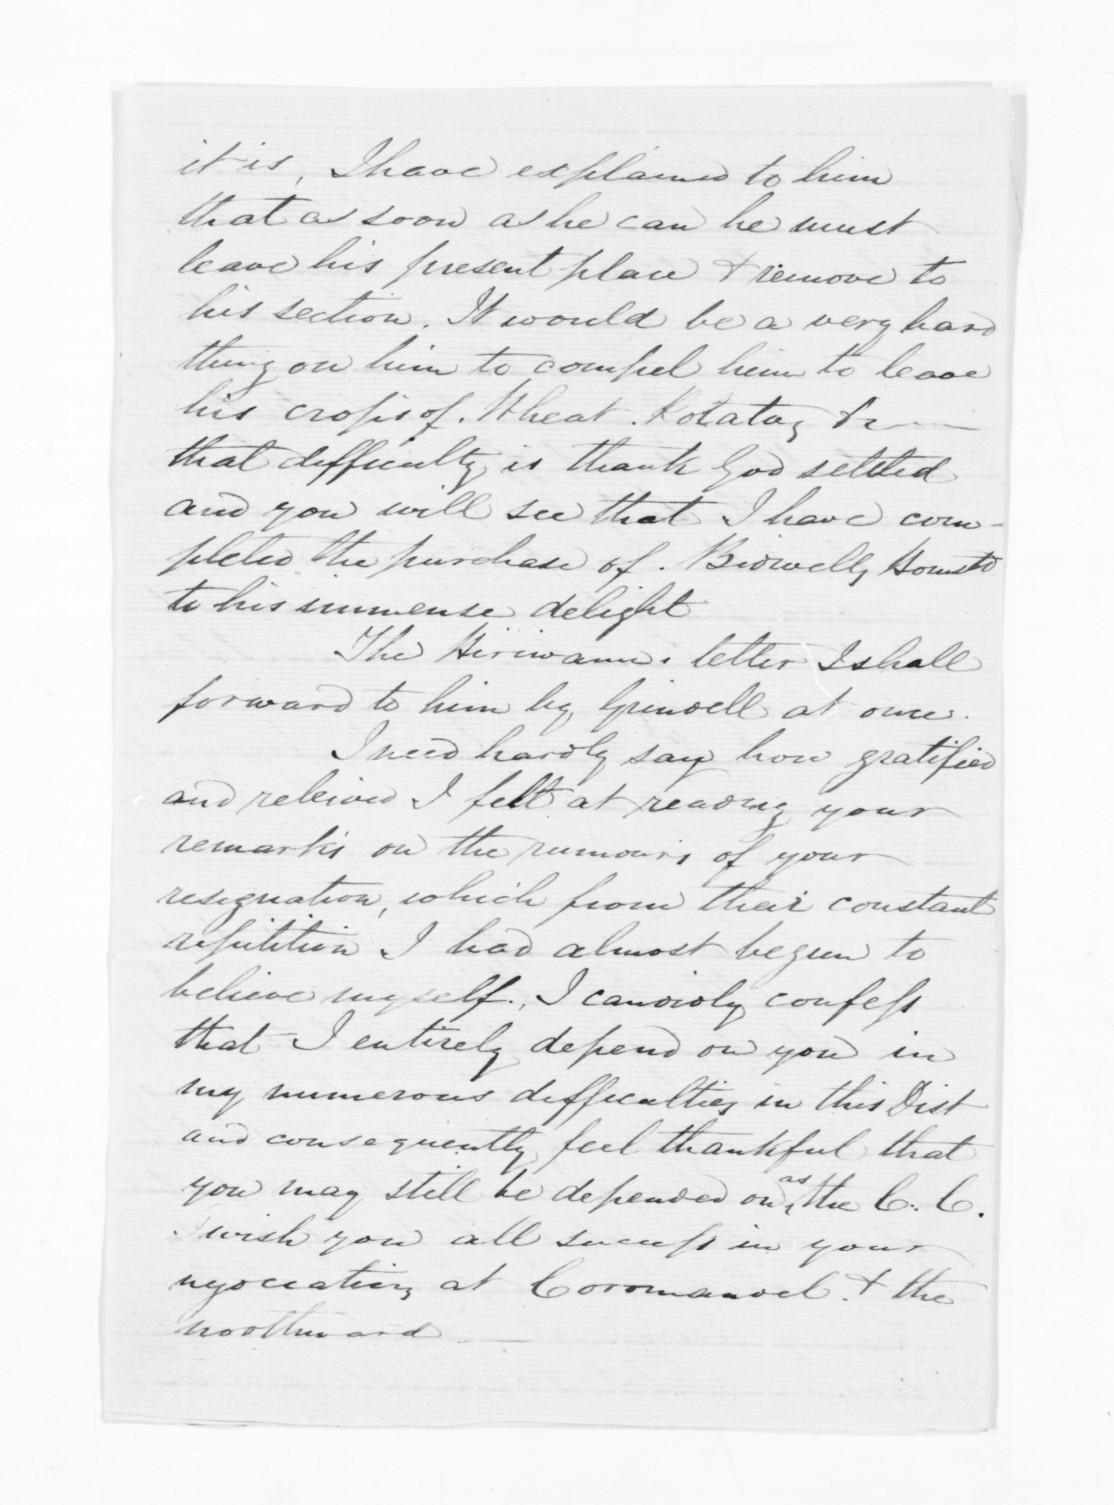 it is, I have explained to him
that as soon as he can he must
leave his present place & remove to
his section. It would be a very hard
thing on him to compel him to leave
his crops of. Wheat. Potatoes &c
that difficulty is thank God settled
and you will see that I have com-
pleted the purchase of. Bidwells Homstd
to his immense delight
The letter I shall
forward to him by Grindell at once.
I need hardly say how gratified
and releived I felt at reading your
remarks on the rumours of your
resignation, which from their constant
repitition I had almost begun to
believe myself., I candidly confess
that I entirely depend on you in
my numerous difficulties in this Dist
and consequently feel thankful that
you may still be depended on as the C. C.
I wish you all success in your
negociations at Coromandel. & the
northward